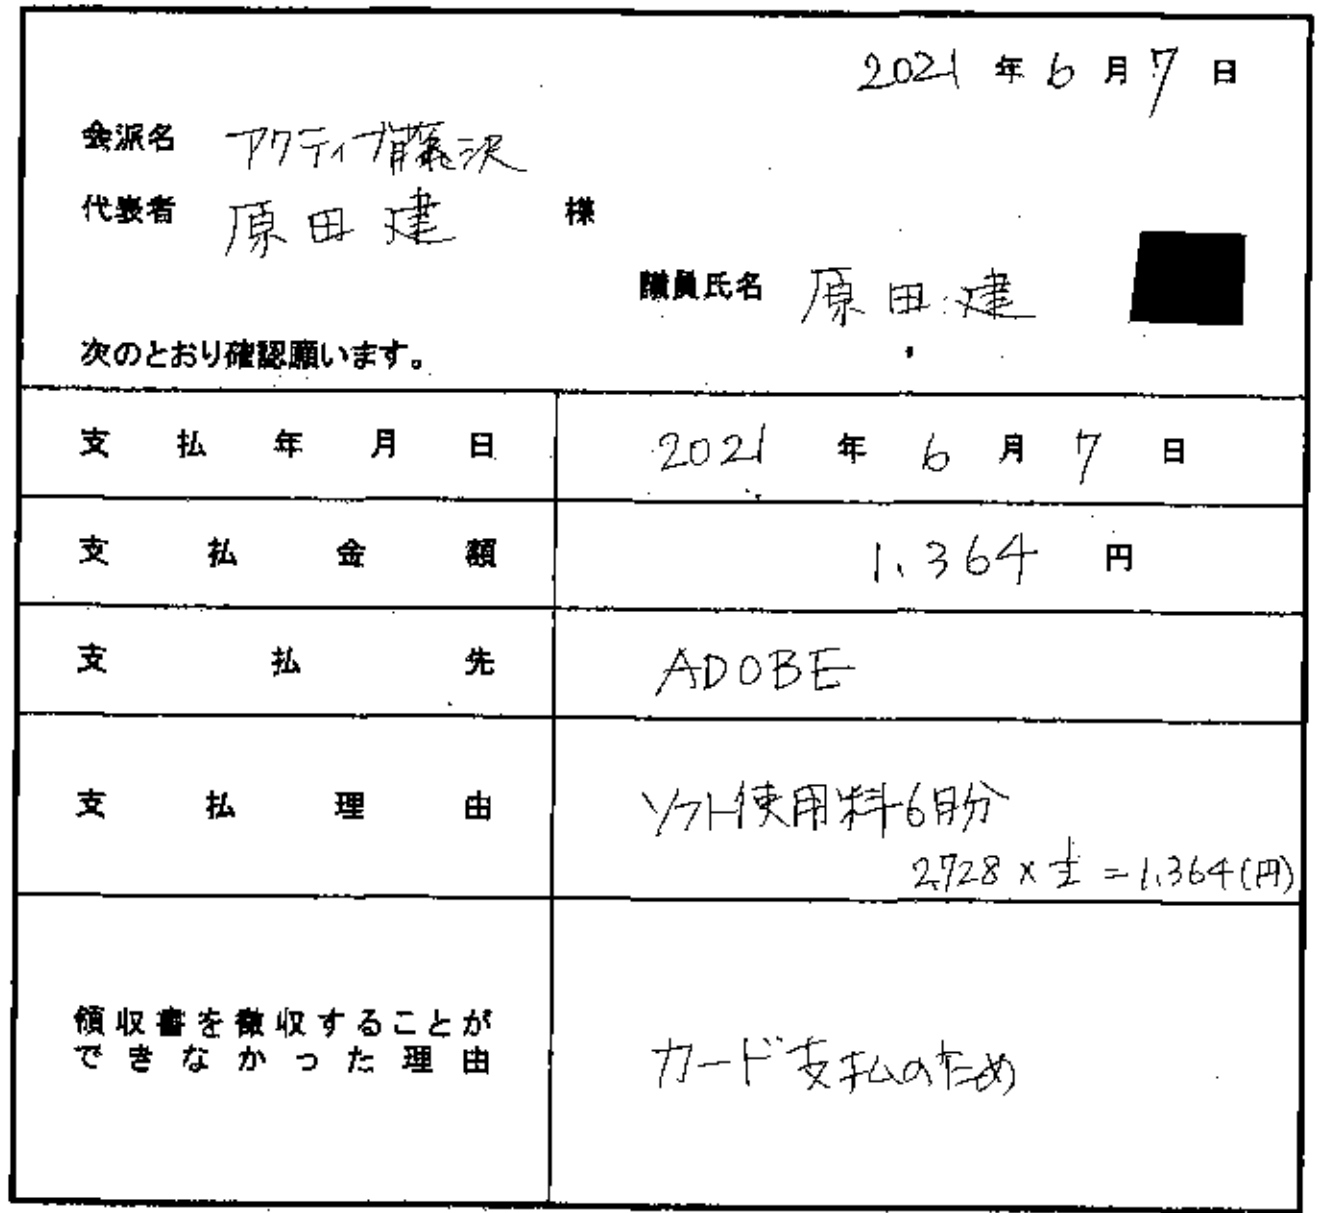 2021 年 6 月 7 日
会派名 アクティブ藤沢
代表者 原田建 様
議員氏名 原田建
次のとおり確認願います。
支払年月日 2021 年 6 月 7 日
支払金額 1,364 円
支払先 ADOBE
支払理由 ソフト使用料6月分
2,728 × 1/2 = 1,364(円)
領収書を徴収することが
できなかった理由 カード支払のため